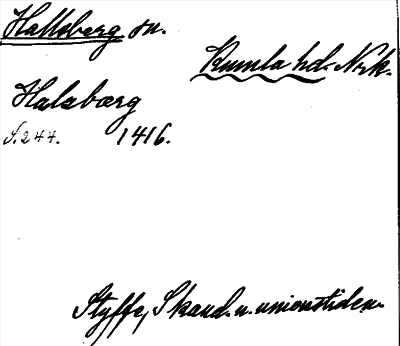 Hallsberg sn.
Kumla hd. Nrk.
Halsbærg
S. 244. 1416.
Styffe, Skand. u. unionstiden.